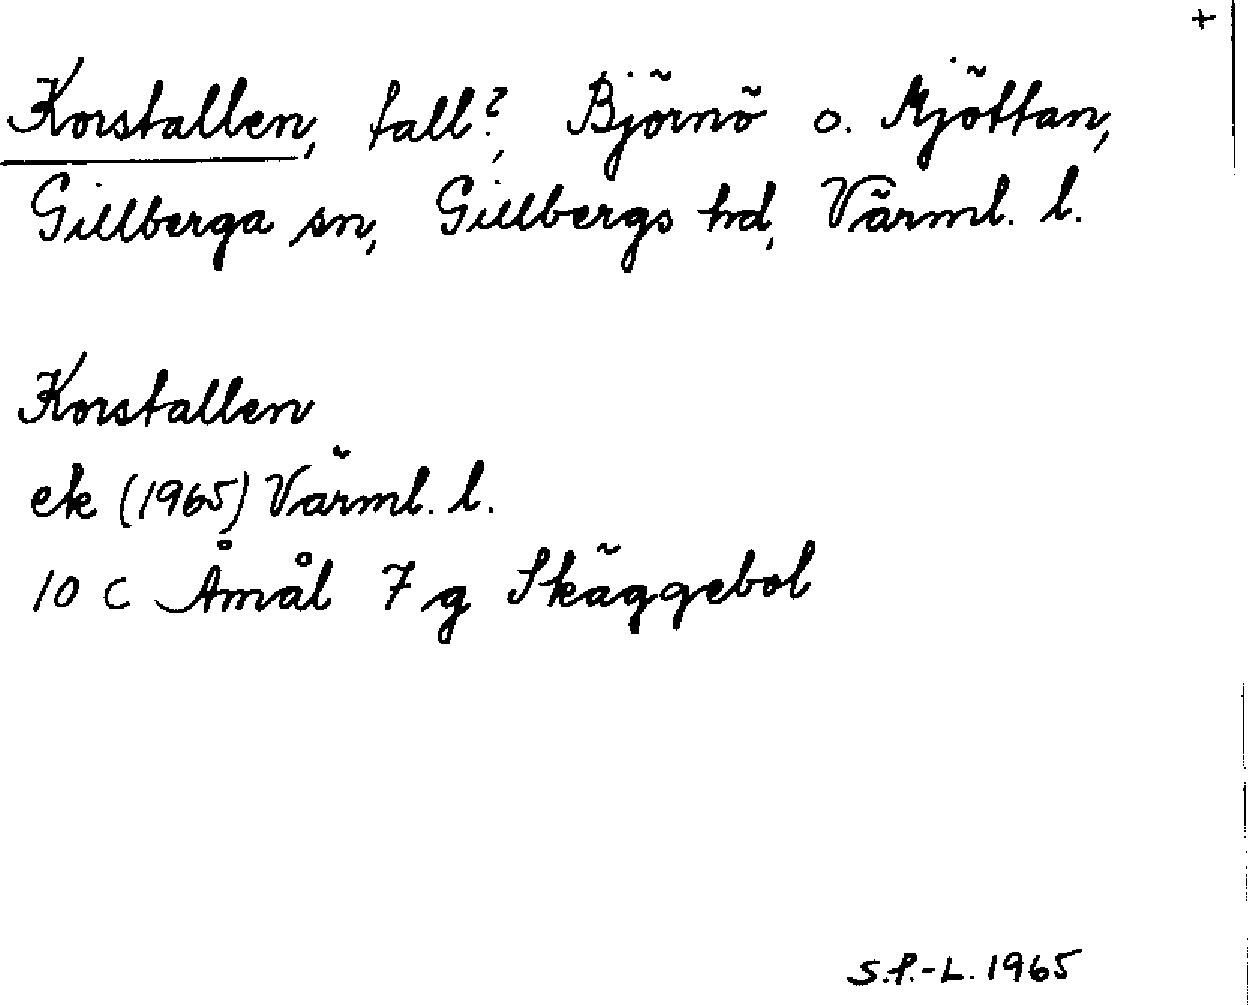 +
Korstallen, tall?, Björnö o. Mjöttan,
Gillberga sn, Gillbergs hd, Värml. l.
Korstallen
ek (1965) Värml. l.
10 C Åmål 7 g Skäggebol
S.P.-L. 1965